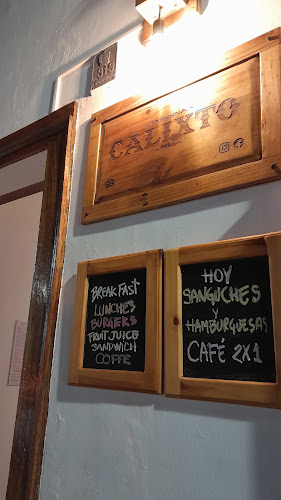 CALIXTO
BREAKFAST
LUNCHES
BURGERS
FRUIT JUICE
SANDWICH
COFFE
HOY
SANGUCHES
Y
HAMBURGUESAS
CAFÉ 2X1